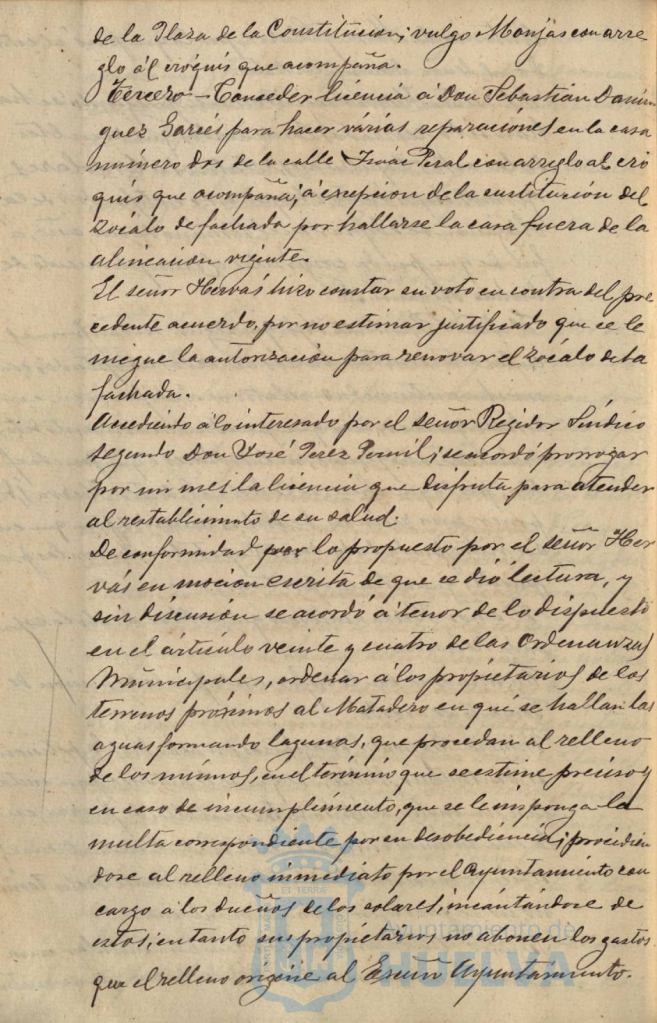 de la Plaza de la Constitucion; vulgo Monjas con arre
glo ál cróquis que acompaña.
Tercero – Conceder licencia á Don Sebastián Domin
guez Garcés para hacer várias reparaciónes en la casa
número dos de la calle Isaác Peral con arreglo al cró
quis que acompaña; á excepcion de la sustitución del
zócalo de fachada por hallarse la casa fuera de la
alineacion vigente.
El señor Hervás hizo constar su voto en contra del pre
cedente acuerdo, por no estimar justificado que se le
niegue la autorización para renovar el zócalo de la
fachada.
Accediendo á lo interesado por el señor Regidor Síndico
segundo Don José Perez Pernil; se acordó prorrogar
por un mes la licencia que disfruta para atender
al restablecimiento de su salud.
De conformidad por lo propuesto por el señor Her
vás en mocion escrita de que se dió lectura, y
sin discusión se acordó á tenor de lo dispuesto
en el artículo veinte y cuatro de las Ordenanzas
Municipales, ordenar á los propietarios de los
terrenos próximos al Matadero en qué se hallan las
aguas formando lagunas, que procedan al relleno
de los mismos, en el término que se estime preciso y
en caso de incumplimiento, que se le imponga la
multa correspondiente por su desobediencia; procedien
dose al relleno inmediato por el Ayuntamiento con
cargo á los dueños de los solares, incautándose de
estos, en tanto sus propietarios no abonen los gastos
que el relleno origine al Excmo Ayuntamiento.
ET TERRA
Ayuntamiento de
HUELVA